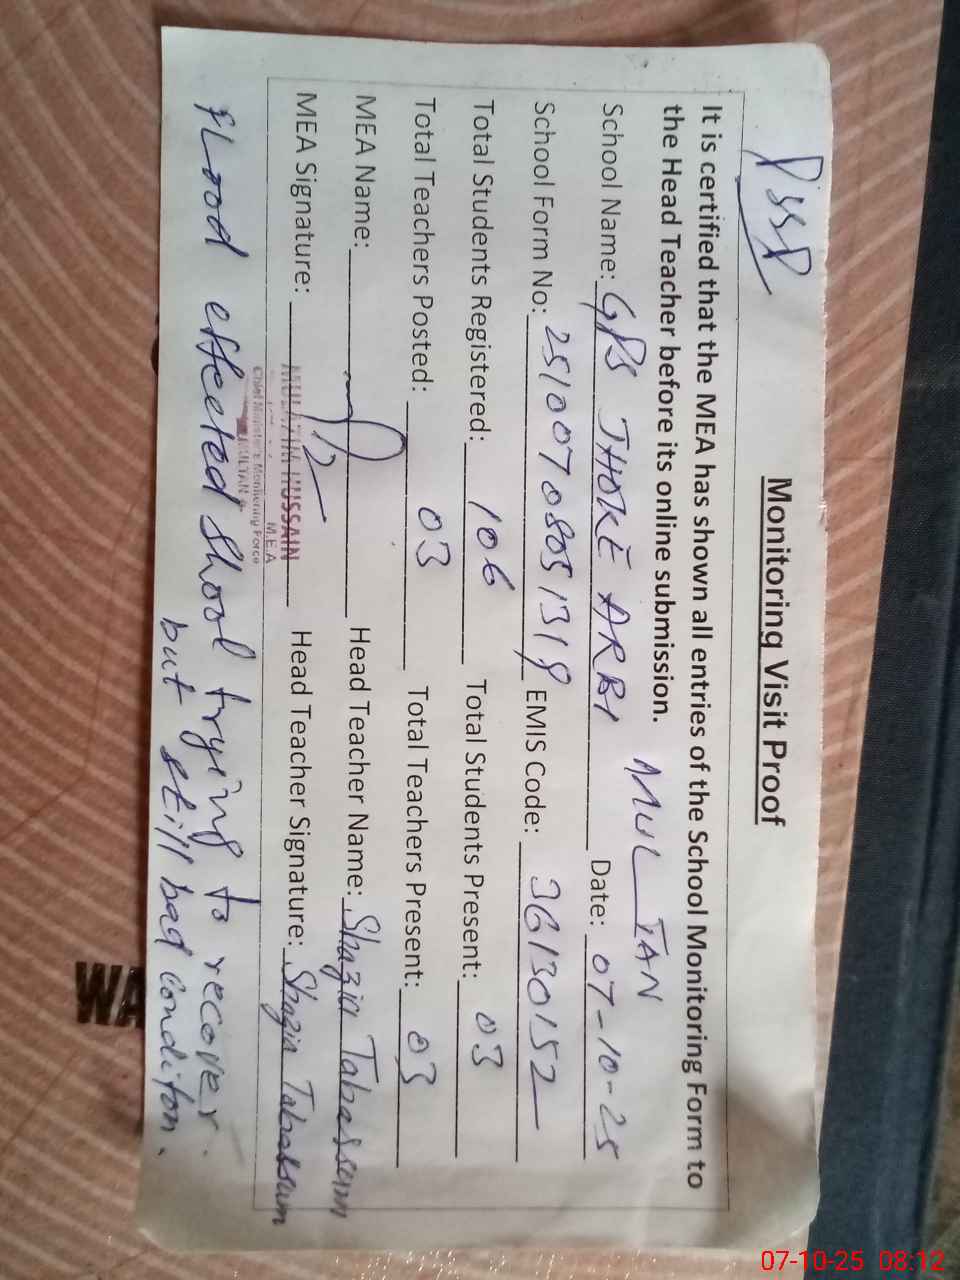 Monitoring Visit Proof
It is certified that the MEA has shown all entries of the School Monitoring Form to
the Head Teacher before its online submission.
MULTAN
School Name: GPS JHOKE ARBI Date: 07-10-25
School Form No: 25100708051319 EMIS Code: 36130152
Total Students Registered: 106 Total Students Present: 03
Total Teachers Posted: 03 Total Teachers Present: 03
MEA Name: Head Teacher Name: Shazia Tabassum
MEA Signature: Head Teacher Signature: Shazia Tabassum
HUSSAIN
M.E.A
Chief Minister's Monitoring Force
MULTAN
Flood effected Shool trying to recover.
but still bad conditon.
WA
07-10-25 08:12